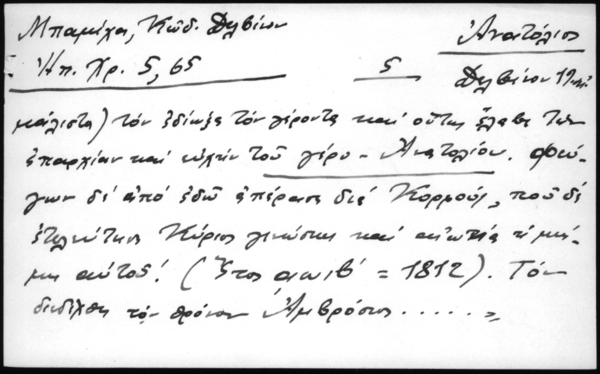 Μπαμίχα, Κῶδ. Δελβίνου
Ἠπ. Χρ. 5, 65
5
Ἀνατόλιος
Δελβίνου
μάλιστα) τὸν ἐδίωξε τὸν γέροντα καὶ οὕτως ἔλαβε τὴν
ἐπαρχίαν καὶ εὐχὴν τοῦ γέρω - Ἀνατολίου. Φεύ-
γων δὲ ἀπὸ ἐδῶ ἐπέρασε διὰ Κορφούς, ποῦ δὲ
ἐτελεύτησε Κύριος γινώσκει καὶ αἰωνία ἡ μνή-
μη αὐτοῦ! (Ἔτος αωιβ' = 1812). Τὸν
διεδέχθη τὸν θρόνον Ἀμβρόσιος ..... »